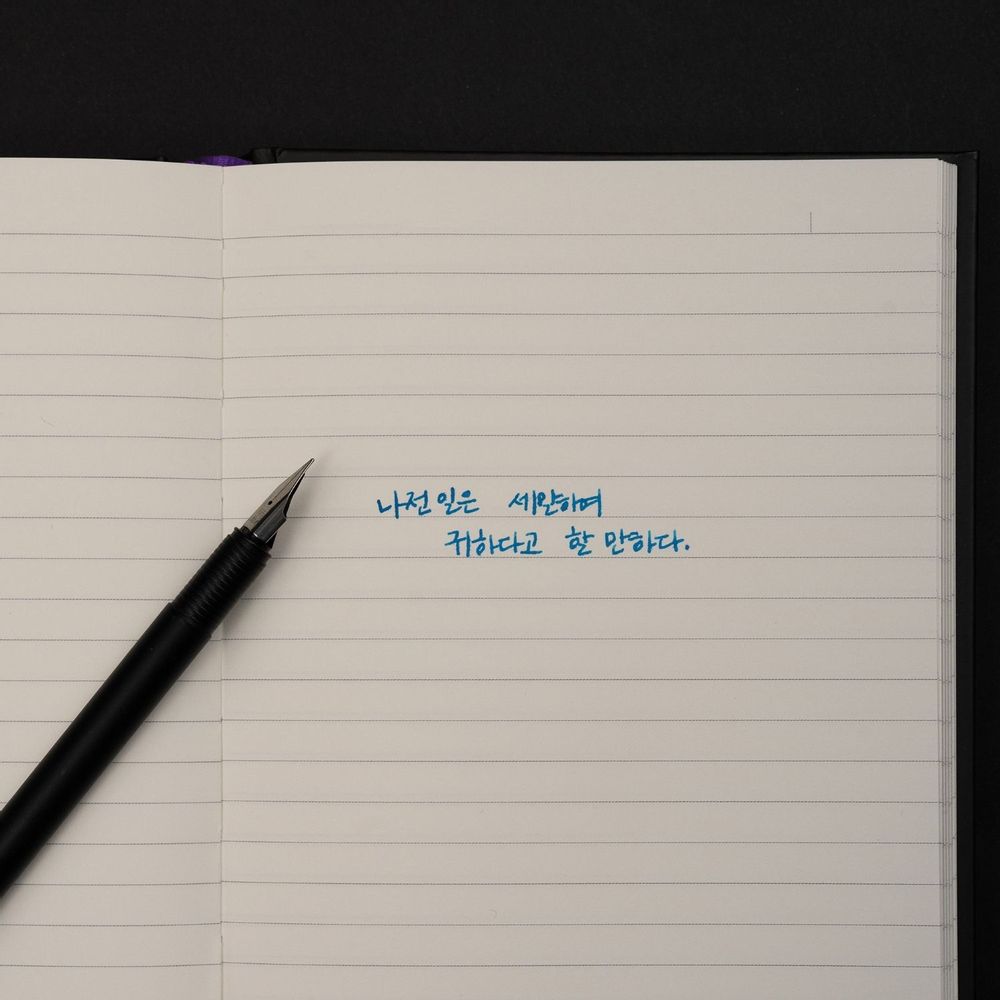 나전 일은 세밀하며
귀하다고 할 만하다.